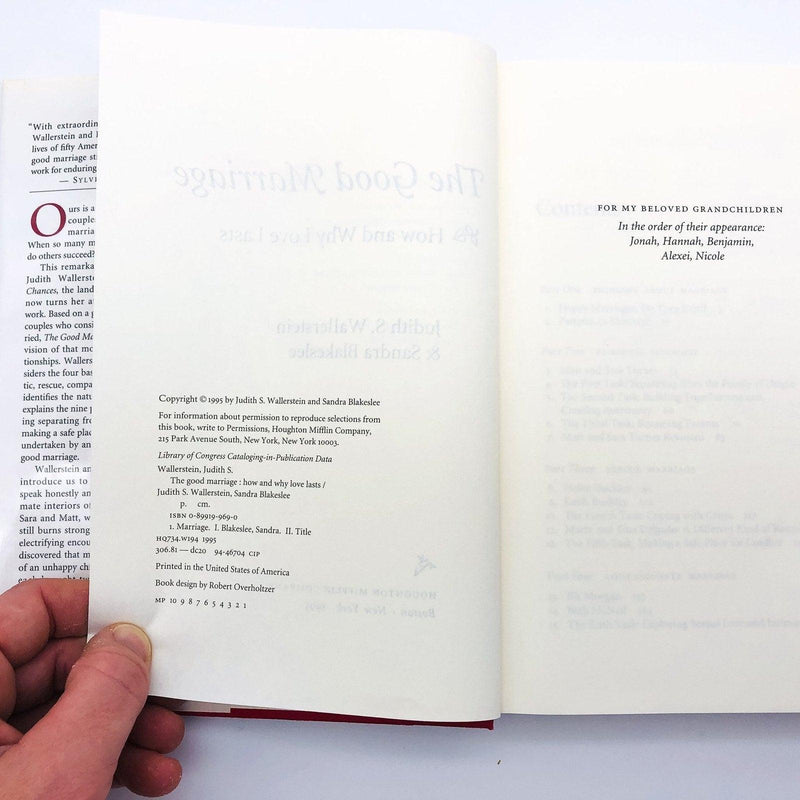 "With extraordin
Wallerstein and
lives of fifty Amer
good marriage st
work for enduring
— SYLV
Ours is a
couple
marria
When so many m
do others succeed?
This remarka
Judith Wallerst
Chances, the land
now turns her a
work. Based on a g
couples who consi
ried, The Good Ma
vision of that mo
tionships. Wallers
siders the four bas
tic, rescue, compa
identifies the natu
explains the nine p
ing separating fro
making a safe plac
undertaken by an
good marriage.
Wallerstein an
introduce us to
speak honestly an
mate interiors of
Sara and Matt, w
still burns strong
electrifying encou
discovered that m
of an unhappy ch
The Good Marriage
How and Why Love Lasts
Judith S. Wallerstein
& Sandra Blakeslee
Copyright © 1995 by Judith S. Wallerstein and Sandra Blakeslee
For information about permission to reproduce selections from
this book, write to Permissions, Houghton Mifflin Company,
215 Park Avenue South, New York, New York 10003.
Library of Congress Cataloging-in-Publication Data
Wallerstein, Judith S.
The good marriage : how and why love lasts /
Judith S. Wallerstein, Sandra Blakeslee
p. cm.
ISBN 0-89919-969-0
1. Marriage. I. Blakeslee, Sandra. II. Title
HQ734.W194 1995
306.81 — dc20 94-46704 CIP
Printed in the United States of America
Book design by Robert Overholtzer
MP 10 9 8 7 6 5 4 3 2 1
HOUGHTON MIFFLIN COMPANY
Boston • New York 1995
FOR MY BELOVED GRANDCHILDREN
In the order of their appearance:
Jonah, Hannah, Benjamin,
Alexei, Nicole